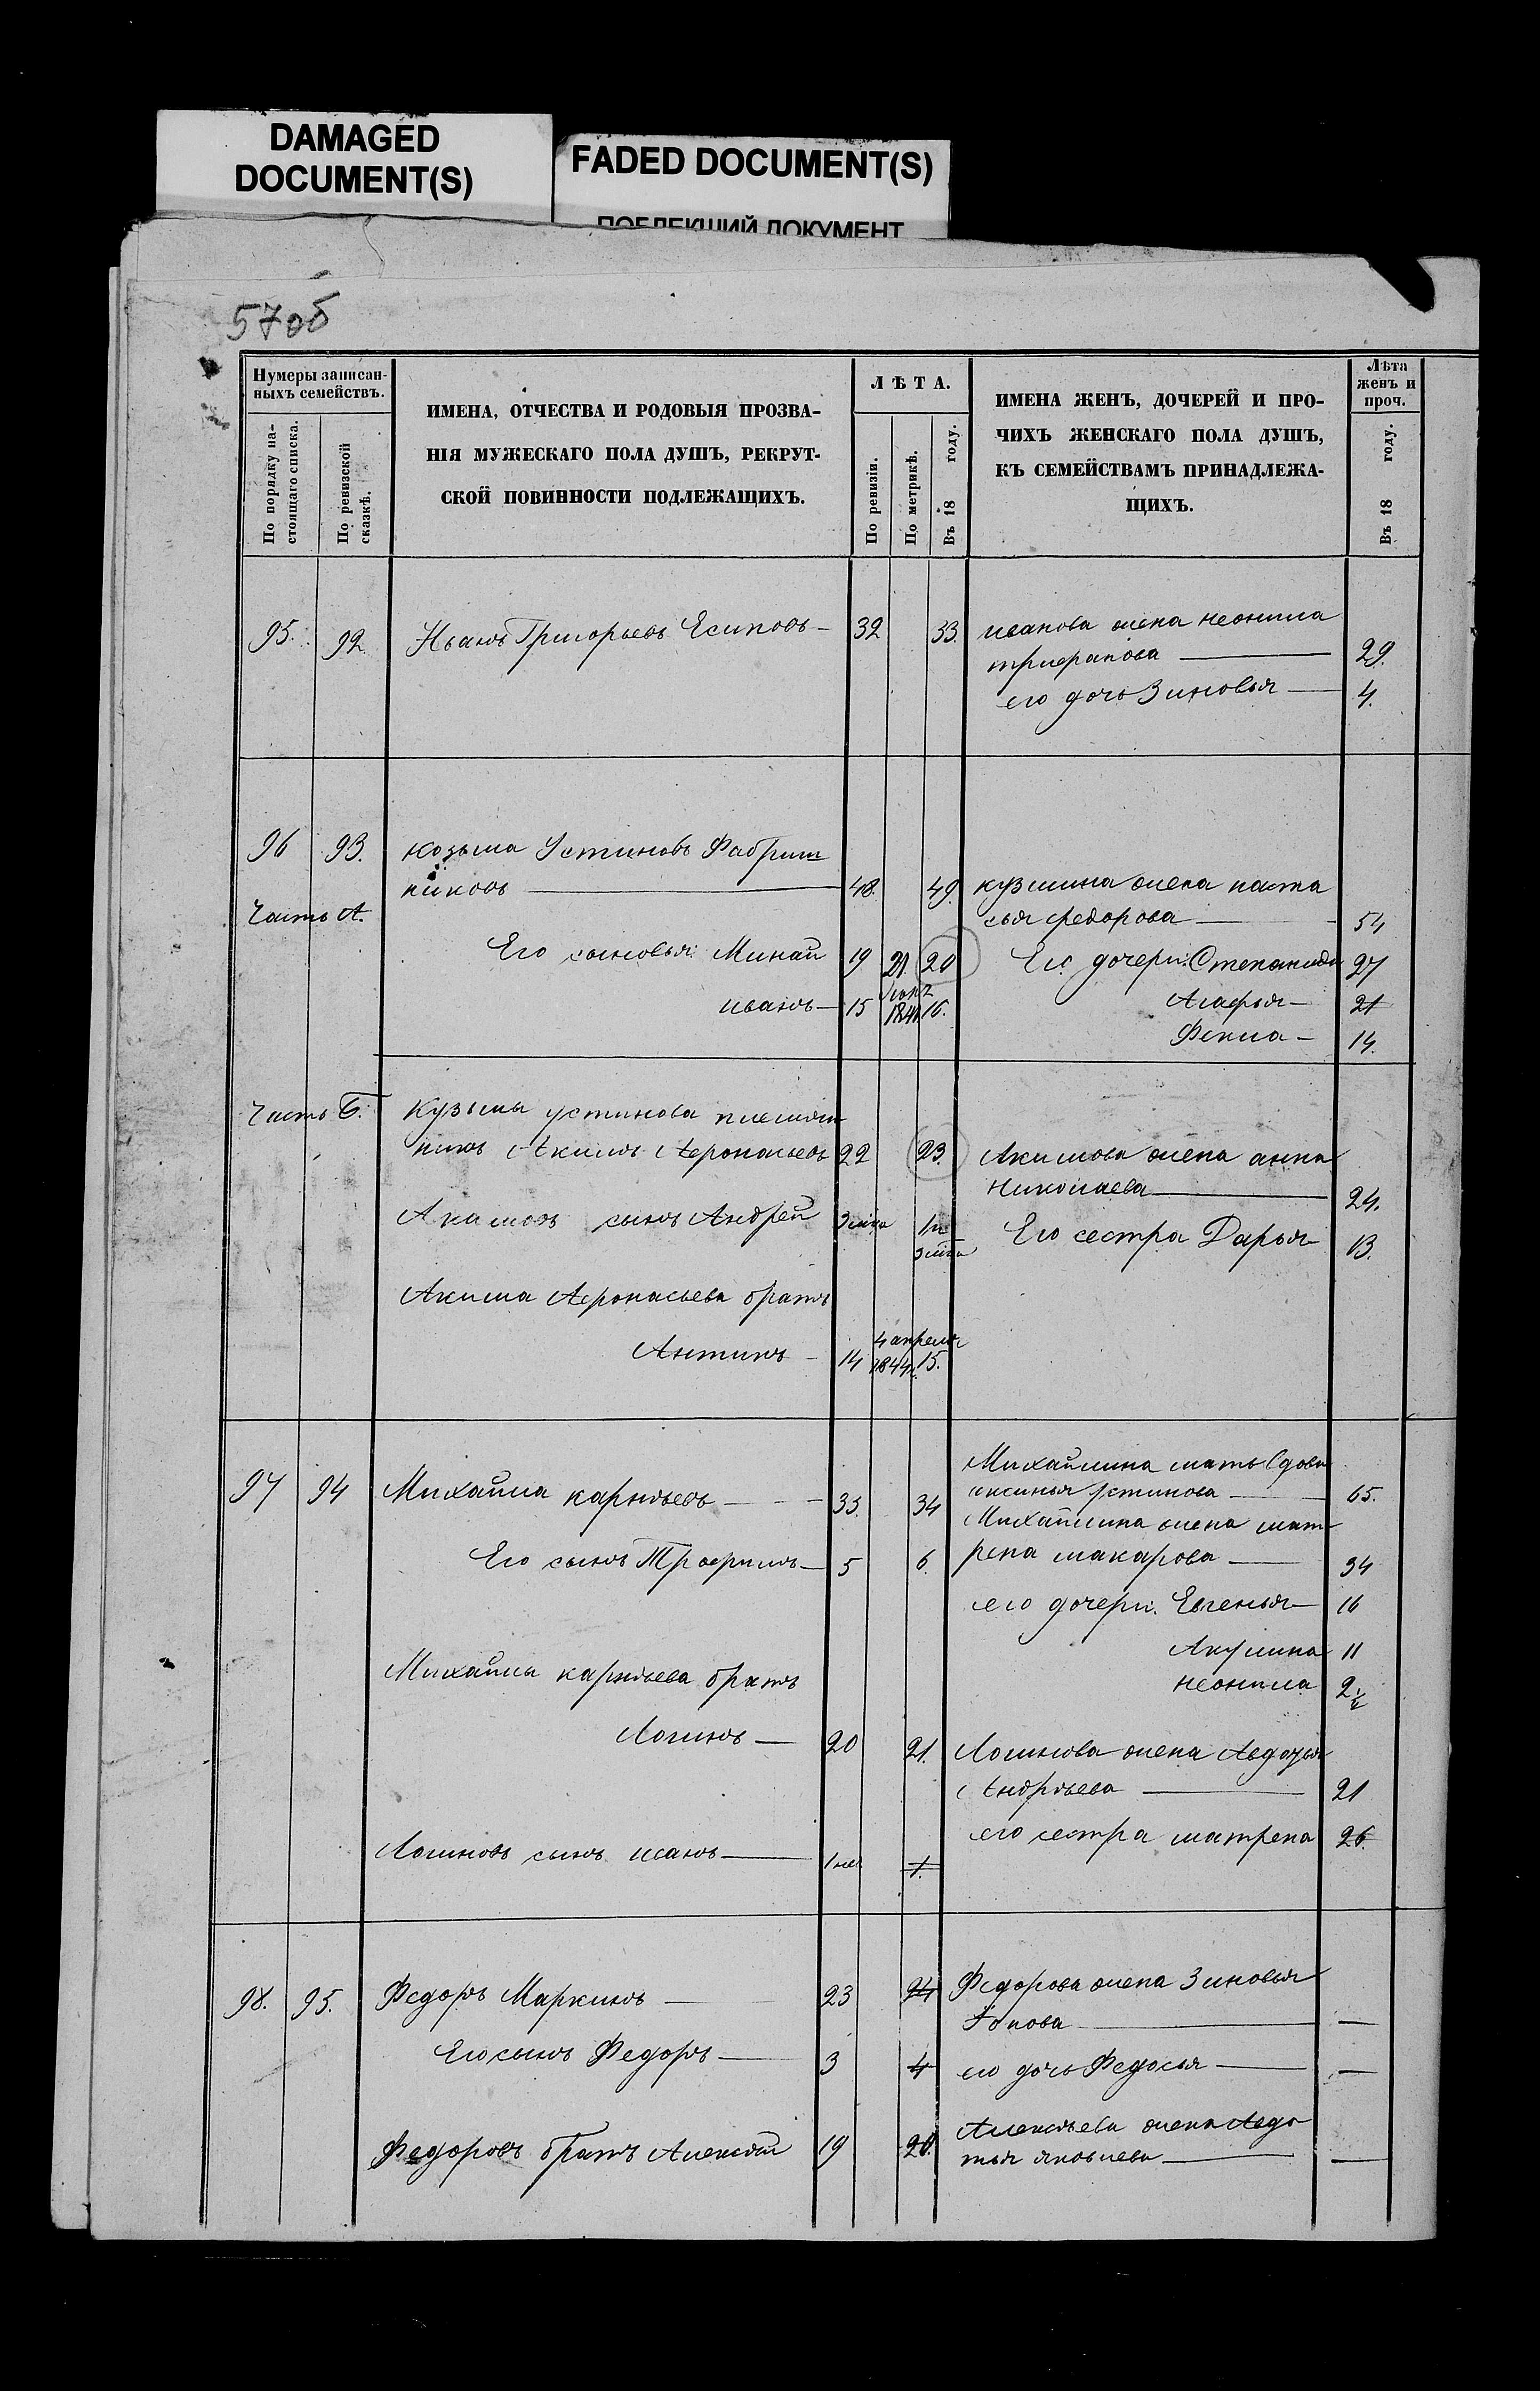 DAMAGED
DOCUMENT(S)
FADED DOCUMENT(S)
ПОБЛЕКШИЙ ДОКУМЕНТ
57об
Нумеры записан-
ныхъ семействъ.
По порядку на-
стоящаго списка.
По ревизской
сказкѣ.
ИМЕНА, ОТЧЕСТВА И РОДОВЫЯ ПРОЗВА-
НІЯ МУЖЕСКАГО ПОЛА ДУШЪ, РЕКРУТ-
СКОЙ ПОВИННОСТИ ПОДЛЕЖАЩИХЪ.
ЛѢТА.
По ревизіи.
По метрикѣ.
Въ 18 году.
ИМЕНА ЖЕНЪ, ДОЧЕРЕЙ И ПРО-
ЧИХЪ ЖЕНСКАГО ПОЛА ДУШЪ,
КЪ СЕМЕЙСТВАМЪ ПРИНАДЛЕЖА-
ЩИХЪ.
Лѣта
женъ и
проч.
Въ 18 году.
95. 92 Иванъ Григорьевъ Есиповъ 32 33. иванова жена неонила
трифанова 29.
его дочь Зиновья 4.
96 93. козьма Устиновъ Фабриш
никовъ 48. 49. кузмина жена наста
сья федорова 54
Часть А.
Его сыновья: Минай 19 21. 20 Его дочери: Степанида 27
иванъ 15 16. Агафья 21
Фекла 14.
Часть Б. Кузьмы устинова племян
никъ Акимъ Афонасьевъ 22 23. Акимова жена анна
Николаева 24.
Акимовъ сынъ Андрей Его сестра Дарья 13.
Акима Афонасьева братъ
Антипъ 14 4 апреля 1844г. 15.
97 94 Михайла карнѣевъ 33. 34 Михайлина мать вдова
аксинья устинова 65.
Его сынъ Трофимъ 5 6. Михайлина жена мат-
рена макарова 34
его дочери. Евгенья 16
Акулина 11
неонила 2 1/2
Михайлы карнѣева братъ
Логинъ 20 21. Логинова жена Авдотья
Андрѣева 21
его сестра матрена 26.
Логиновъ сынъ исакъ 1 1.
98. 95. Федоръ Маркинъ 23 24 Федорова жена Зиновья
Его сынъ Федоръ 3 4 его дочь Федосья
Федоровъ братъ Алексѣй 19 20. Алексѣева жена Авдо
тья яковлева